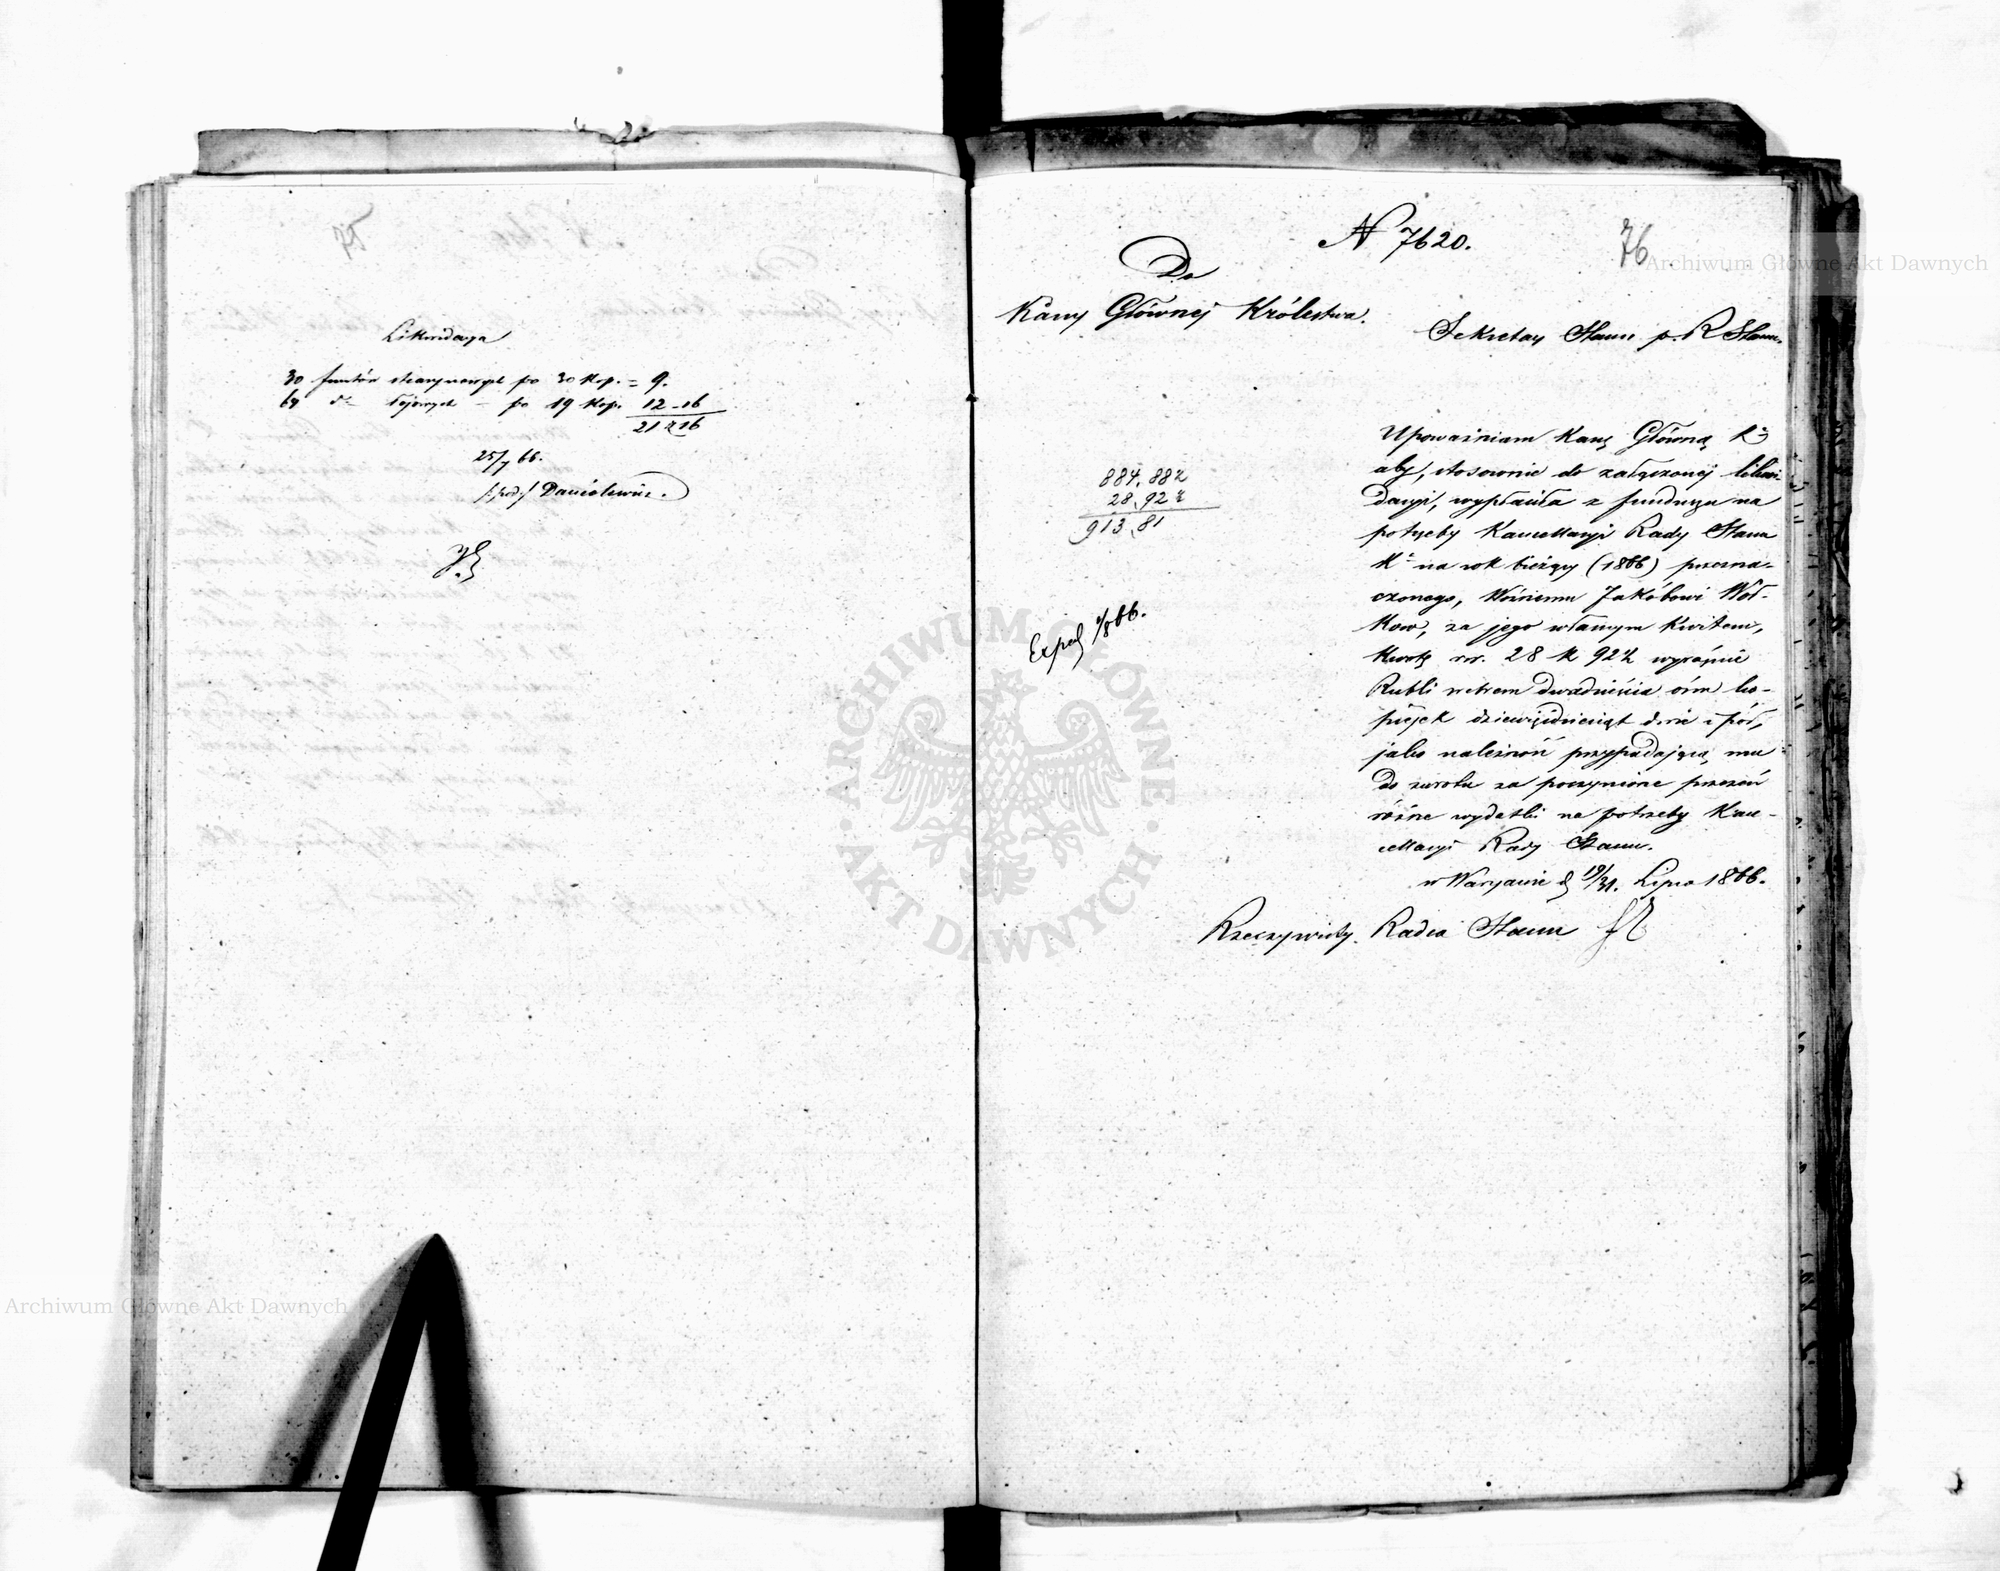 Likwidacya
30 funtów stearynowych po 30 kop. = 9.
64 dto łojowych - po 19 kop. 12-16
21 r 16
25/7 66.
/:podp:/ Danielewicz.
N 7620.
76
Do
Kassy Głównej Królestwa.
Sekretarz Stanu p. R Stanu
884, 88½
28, 92½
913, 81
Exped 1/8 66.
Upoważniam Kassę Główną Kr
aby, stosownie do załączonej likwi-
dacyi, wypłaciła z funduszu na
potrzeby Kancellaryi Rady Stanu
Kr na rok bieżący (1866) przezna-
czonego, Woźnemu Jakóbowi Woł-
kow, za jego własnym kwitem,
kwotę rsr. 28 k 92½ wyraźnie
Rubli srebrem dwadzieścia ośm ko-
piejek dziewięćdziesiąt dwie i pół,
jako należność przypadającą mu
do zwrotu za poczynione przezeń
różne wydatki na potrzeby Kan-
cellaryi Rady Stanu.
w Warszawie d 19/31. Lipca 1866.
Rzeczywisty Radca Stanu
ARCHIWUM GŁÓWNE
AKT DAWNYCH
Archiwum Główne Akt Dawnych
Archiwum Główne Akt Dawnych